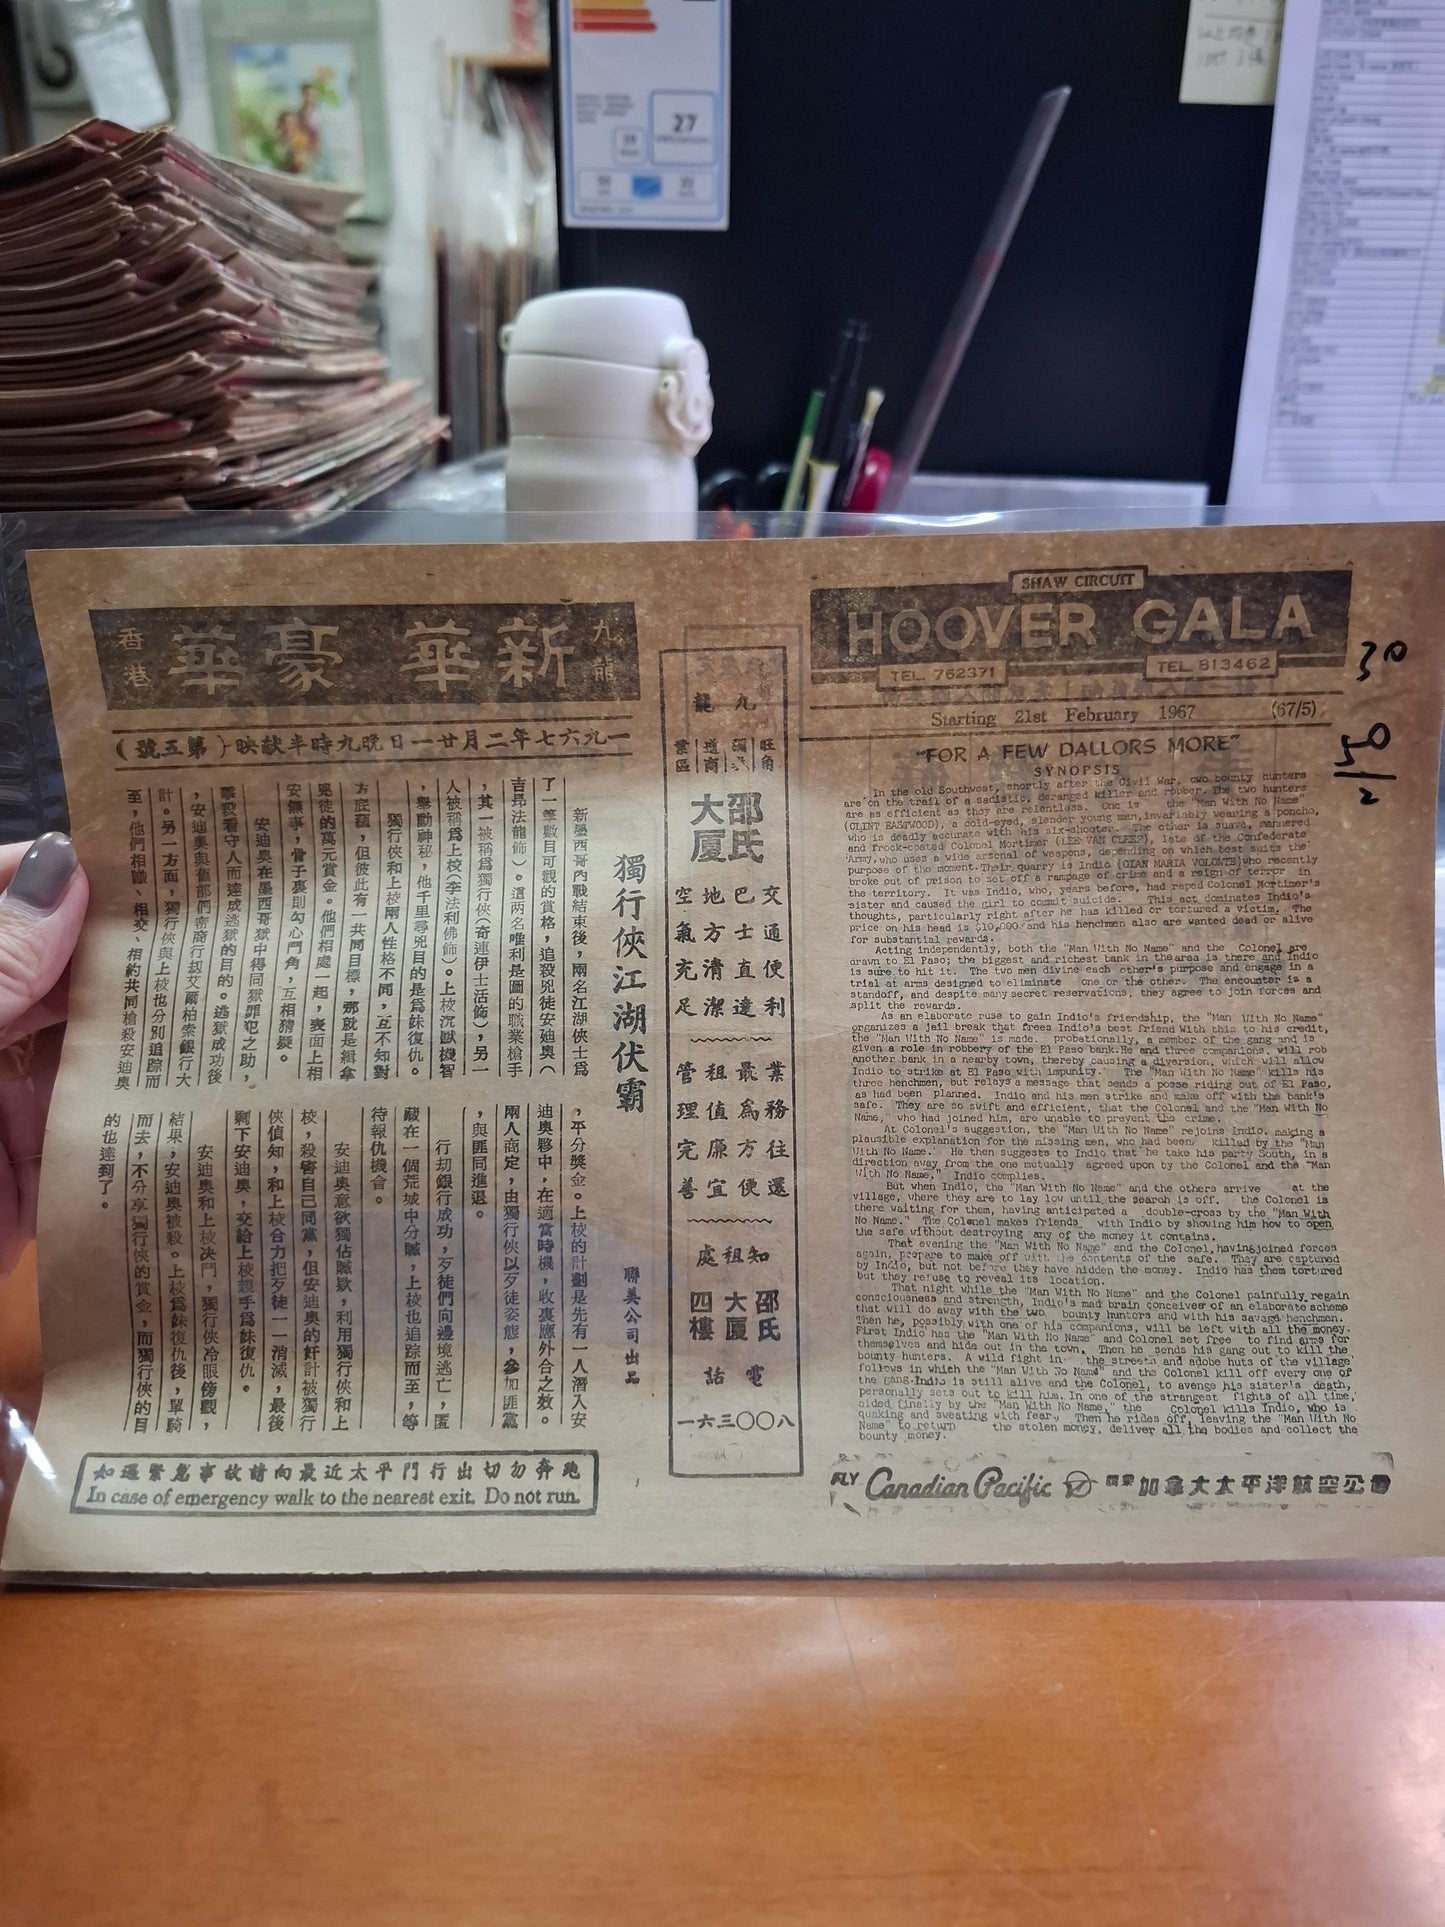 九龍 新華 豪華 香港
一九六七年二月廿一日晚九時半献映（第五號）
獨行俠江湖伏霸
聯美公司出品
新墨西哥內戰結束後，兩名江湖俠士爲
了一筆數目可觀的賞格，追殺兇徒安廸奧（
吉昂法龍飾）。這两名唯利是圖的職業槍手
，其一被稱爲獨行俠（奇連伊士活飾），另一
人被稱爲上校（李法利佛飾）。上校沉默機智
，舉動神秘，他千里尋兇目的是爲妹復仇。
獨行俠和上校兩人性格不同，互不知對
方底蘊，但彼此有一共同目標，那就是緝拿
兇徒的萬元賞金。他們相處一起，表面上相
安無事，骨子裏則勾心鬥角，互相猜疑。
安廸奧在墨西哥獄中得同獄罪犯之助，
擊殺看守人而達成逃獄的目的。逃獄成功後
，安廸奧與舊部們密商行刼艾爾柏索銀行大
計。另一方面，獨行俠與上校也分別追踪而
至，他們相識、相交、相約共同槍殺安廸奧
，平分獎金。上校的計劃是先有一人潛入安
廸奧夥中，在適當時機，收裏應外合之效。
兩人商定，由獨行俠以歹徒姿態，參加匪黨
，與匪同進退。
行刼銀行成功，歹徒們向邊境逃亡，匿
藏在一個荒城中分贓，上校也追踪而至，等
待報仇機會。
安廸奧意欲獨佔贓欵，利用獨行俠和上
校，殺害自己同黨，但安廸奧的奸計被獨行
俠偵知，和上校合力把歹徒一一消滅，最後
剩下安廸奧，交給上校親手爲妹復仇。
安廸奧和上校決鬥，獨行俠冷眼傍觀，
結果，安廸奧被殺。上校爲妹復仇後，單騎
而去，不分享獨行俠的賞金，而獨行俠的目
的也達到了。
如遇緊急事故請向最近太平門行出切勿奔跑
In case of emergency walk to the nearest exit. Do not run.
九龍
旺角
道商
業區
邵氏大厦
交通便利
巴士直達
地方清潔
空氣充足
業務往還
最爲方便
租值廉宜
管理完善
知租處
邵氏大廈四樓
電話
八〇〇三六一
SHAW CIRCUIT
HOOVER GALA
TEL. 762371 TEL. 813462
Starting 21st February 1967 (67/5)
"FOR A FEW DALLORS MORE"
SYNOPSIS
In the old Southwest, shortly after the Civil War, two bounty hunters
are on the trail of a sadistic, deranged killer and robber. The two hunters
are as efficient as they are relentless. One is the "Man With No Name"
(CLINT EASTWOOD), a cold-eyed, slender young man, invariably wearing a poncho,
who is deadly accurate with his six-shooter. The other is suave, mannered
and frock-coated Colonel Mortimer (LEE VAN CLEEF), late of the Confederate
Army, who uses a wide arsenal of weapons, depending on which best suits the
purpose of the moment. Their quarry is Indio (GIAN MARIA VOLONTE) who recently
broke out of prison to set off a rampage of crime and a reign of terror in
the territory. It was Indio, who, years before, had raped Colonel Mortimer's
sister and caused the girl to commit suicide. This act dominates Indio's
thoughts, particularly right after he has killed or tortured a victim. The
price on his head is $10,000 and his henchmen also are wanted dead or alive
for substantial rewards.
Acting independently, both the "Man With No Name" and the Colonel are
drawn to El Paso; the biggest and richest bank in the area is there and Indio
is sure to hit it. The two men divine each other's purpose and engage in a
trial at arms designed to eliminate one or the other. The encounter is a
standoff, and despite many secret reservations, they agree to join forces and
split the rewards.
As an elaborate ruse to gain Indio's friendship, the "Man With No Name"
organizes a jail break that frees Indio's best friend With this to his credit,
the "Man With No Name" is made. probationally, a member of the gang and is
given a role in robbery of the El Paso bank. He and three companions, will rob
another bank in a nearby town, thereby causing a diversion, which will allow
Indio to strike at El Paso with impunity. The "Man With No Name" kills his
three henchmen, but relays a message that sends a posse riding out of El Paso,
as had been planned. Indio and his men strike and make off with the bank's
safe. They are so swift and efficient, that the Colonel and the "Man With No
Name," who had joined him, are unable to prevent the crime.
At Colonel's suggestion, the "Man With No Name" rejoins Indio, making a
plausible explanation for the missing men, who had been killed by the "Man
With No Name." He then suggests to Indio that he take his party South, in a
direction away from the one mutually agreed upon by the Colonel and the "Man
With No Name," Indio complies.
But when Indio, the "Man With No Name" and the others arrive at the
village, where they are to lay low until the search is off, the Colonel is
there waiting for them, having anticipated a double-cross by the "Man With
No Name." The Colonel makes friends with Indio by showing him how to open
the safe without destroying any of the money it contains.
That evening the "Man With No Name" and the Colonel, having joined forces
again, prepare to make off with the contents of the safe. They are captured
by Indio, but not before they have hidden the money. Indio has them tortured
but they refuse to reveal its location.
That night while the "Man With No Name" and the Colonel painfully regain
consciousness and strength, Indio's mad brain conceives of an elaborate scheme
that will do away with the two bounty hunters and with his savage henchmen.
Then he, possibly with one of his companions, will be left with all the money.
First Indio has the "Man With No Name" and Colonel set free to find arms for
themselves and hide out in the town. Then he sends his gang out to kill the
bounty hunters. A wild fight in the streets and adobe huts of the village
follows in which the "Man With No Name" and the Colonel kill off every one of
the gang. Indio is still alive and the Colonel, to avenge his sister's death,
personally sets out to kill him. In one of the strangest fights of all time,
aided finally by the "Man With No Name," the Colonel kills Indio, who is
quaking and sweating with fear. Then he rides off, leaving the "Man With No
Name" to return the stolen money, deliver all the bodies and collect the
bounty money.
FLY Canadian Pacific 加拿大太平洋航空公司
30
27